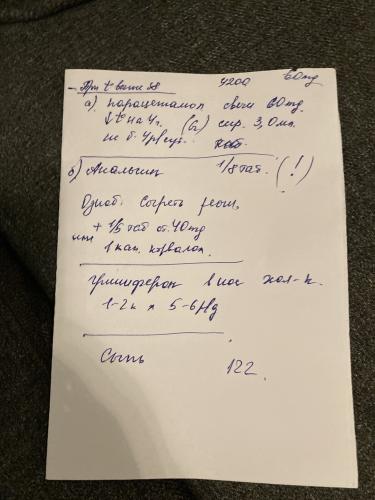 - При t° выше 38 4200 60mg
а) парацетамол свечи 60mg.
↓t° на 4ч. (6ч) сир. 3,0 мл.
не б. 4р/сут.
б) Анальгин 1/8 таб. (!)
Озноб. Согреть
+ 1/5 таб от. 40mg
или 1 кап. корвалол.
Гриппферон в нос
1-2к х 5-6р/д
Сыпь 122.